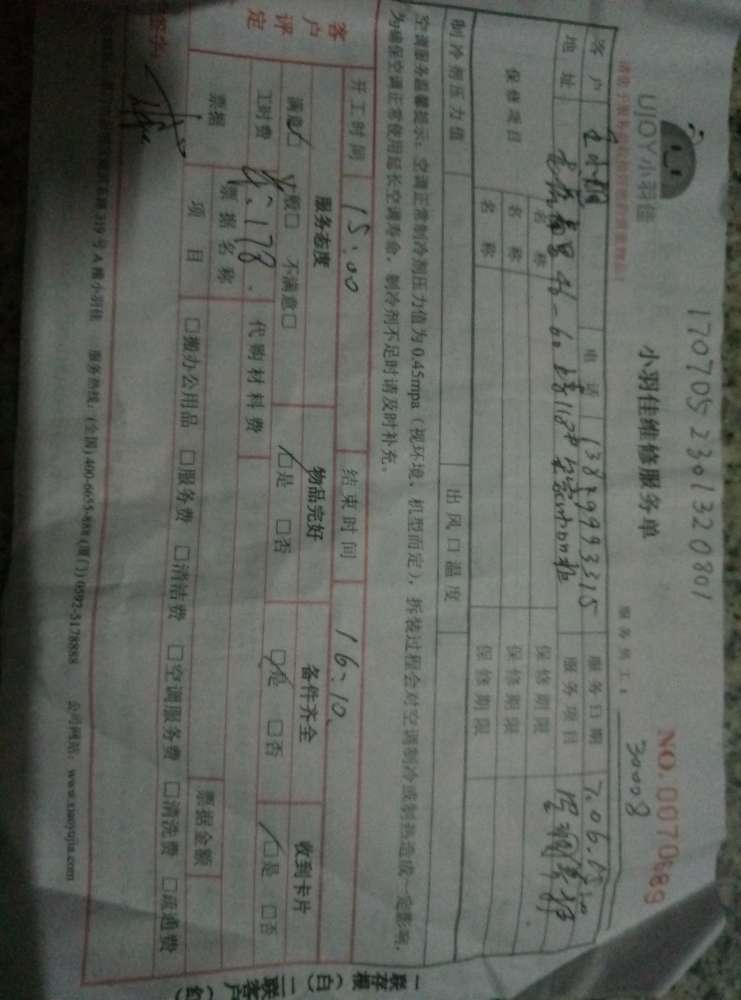 1707052301320801
UJOY小羽佳
小羽佳维修服务单
NO. 0070689
服务员工：30008
客户 电话 13829993315 服务日期 7.06.15:00
地址 服务项目
保修项目 名称 保修期限
名称 保修期限
名称 保修期限
制冷剂压力值 出风口温度
空调服务温馨提示：空调正常制冷剂压力值为0.45mpa（视环境、机型而定），拆装过程会对空调制冷或制热造成一定影响，
为确保空调正常使用延长空调寿命，制冷剂不足时请及时补充。
开工时间 15:00 结束时间 16:10
客户评定 服务态度 物品完好 备件齐全 收到卡片
满意□ 一般□ 不满意□ □是 □否 □是 □否 □是 □否
工时费 178. 代购材料费
票据 票据名称 票据金额
项目 □搬办公用品 □服务费 □清洁费 □空调服务费 □清洗费 □疏通费
319号A楼小羽佳 服务热线：(全国)400-6655-888(厦门)0592-5178888 公司网站：www.xiaoyujia.com
一联存根（白）二联客户（红